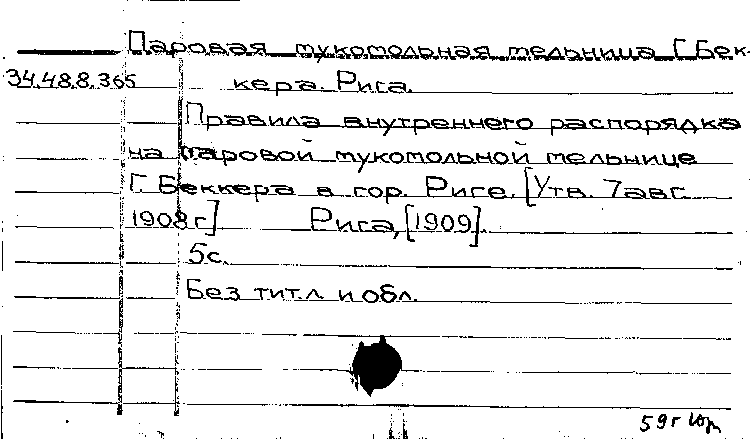 Паровая мукомольная мельница Г. Бек-
34.48.8.365 кера. Рига.
Правила внутреннего распорядка
на паровой мукомольной мельнице
Г. Беккера в гор. Риге. [Утв. 7 авг.
1908 г] Рига, [1909].
5 с.
Без тит. л. и обл.
59 г